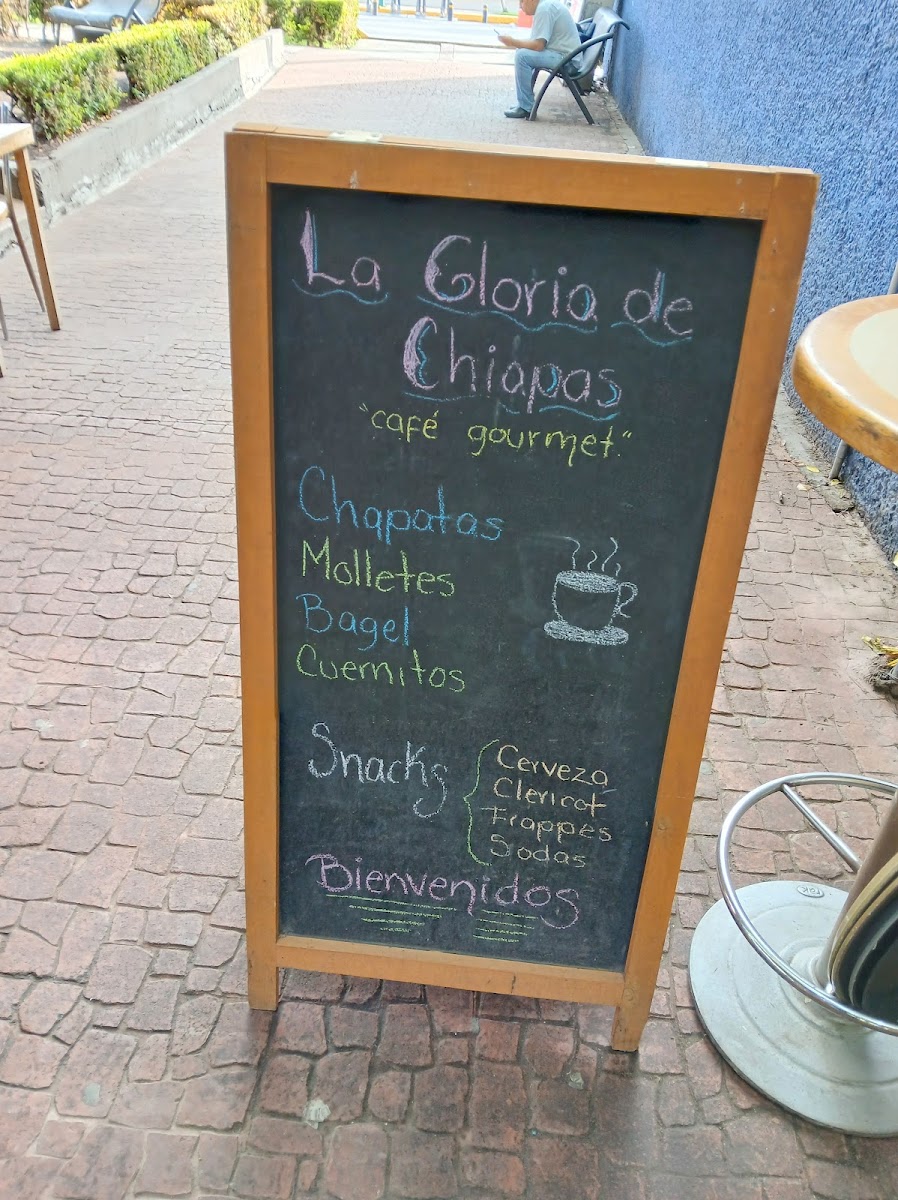 La Gloria de
Chiapas
"café gourmet."
Chapatas
Molletes
Bagel
Cuernitos
Snacks
Cerveza
Clericot
Frappes
Sodas
Bienvenidos